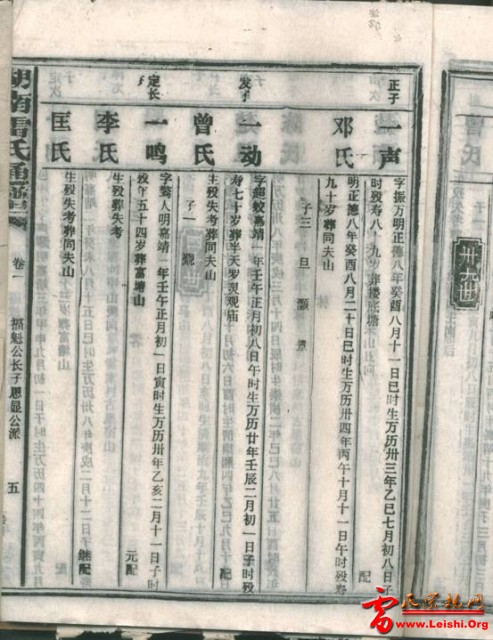 正子
一声
字振万明正德八年癸酉八月十一日巳时生万历卅三年乙巳七月初八日子
时殁寿八十九岁葬楼底塘
配
邓氏
明正德八年癸酉八月二十日巳时生万历卅四年丙午十月十一日午时殁寿
九十岁葬同夫山
子三 旦 显 景
发子
一动
字超蛟嘉靖一年壬午正月初八日午时生万历廿年壬辰二月初一日子时殁
寿七十岁葬半天罗观观庙
配
曾氏
生殁失考葬同夫山
子一
定长子
一鸣
字惊人明嘉靖一年壬午正月初一日寅时生万历卅年乙亥二月十一日子时
殁年五十四岁葬富塘山
元配
李氏
生殁失考
继配
匡氏
生殁失考葬同夫山
湖南雷氏通谱
卷一
福魁公长子思显公派
五
卅九世
雷氏宗族网
www.Leishi.Org